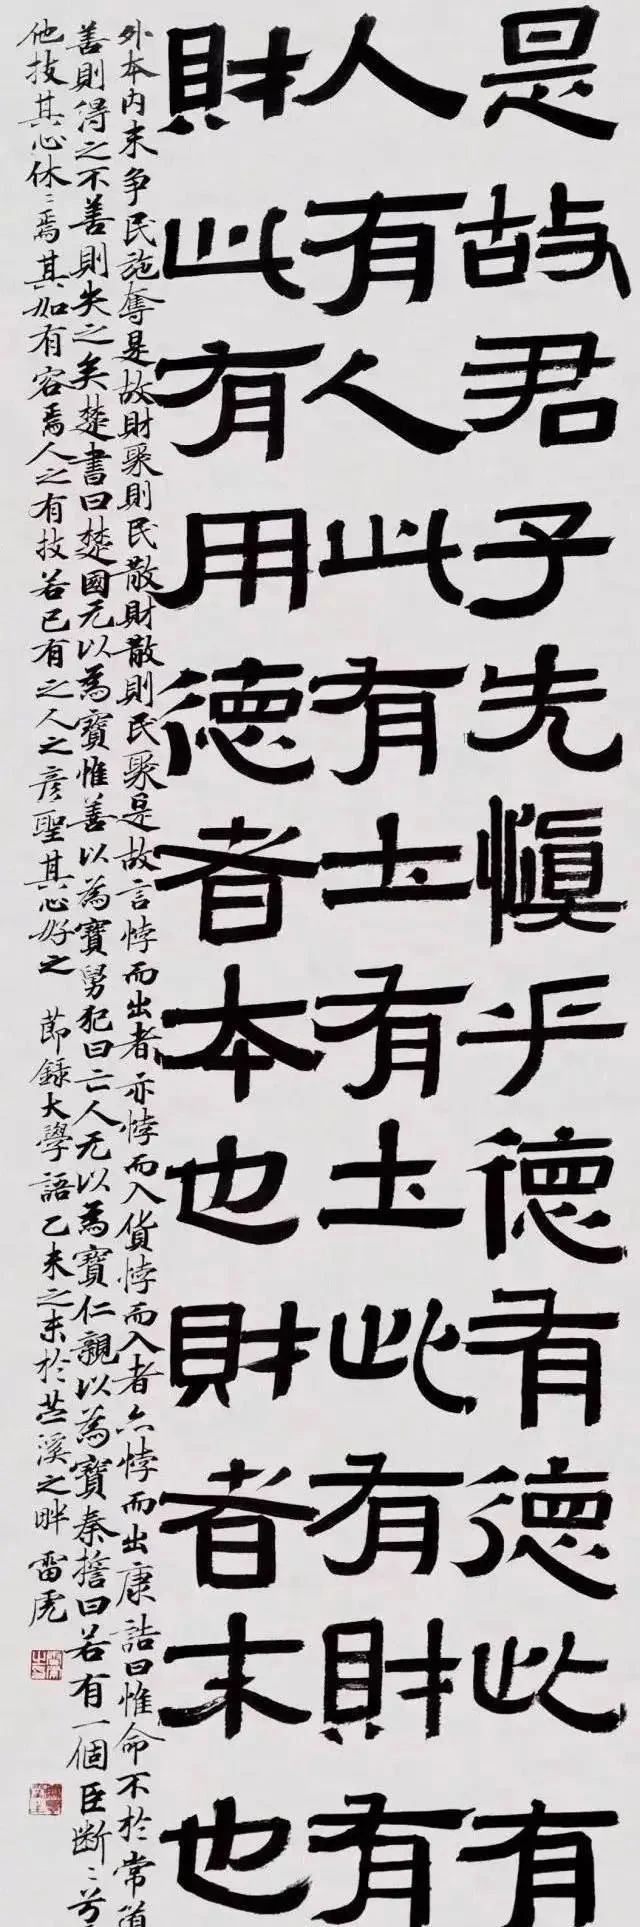 是故君子先慎乎德有德此有
人有人此有土有土此有財有
財此有用德者本也財者末也
外本内末争民施奪是故財聚則民散財散則民聚是故言悖而出者亦悖而入貨悖而入者亦悖而出康誥曰惟命不於常道
善則得之不善則失之矣楚書曰楚國无以為寶惟善以為寶舅犯曰亡人无以為寶仁親以為寶秦誓曰若有一個臣断〻兮
他技其心休〻焉其如有容焉人之有技若己有之人之彦聖其心好之 節録大學語乙未之末於苕溪之畔雷虎